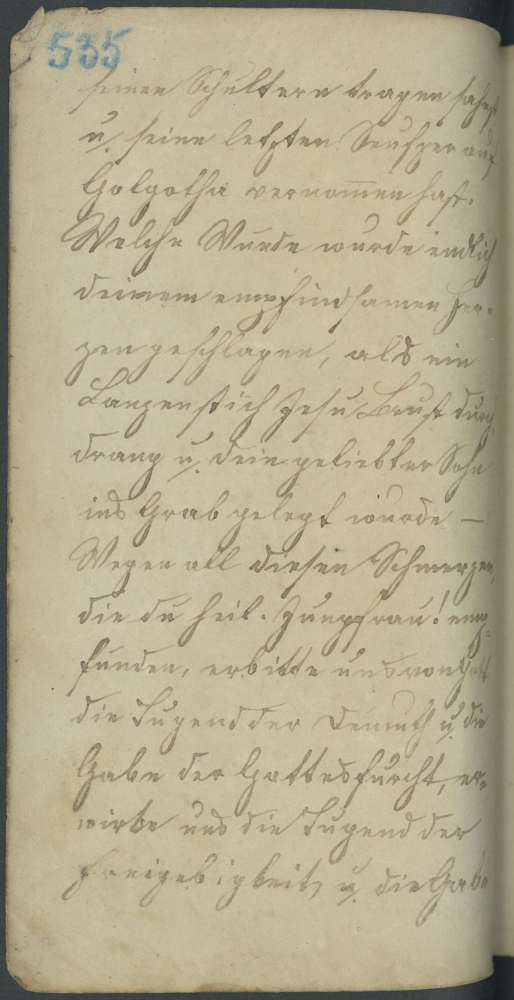 535
seinen Schultern tragen sahest
u. seine letzten Seufzer auf
Golgotha vernommen hast.
Welche Wunde wurde endlich
deinem empfindsamen Her-
zen geschlagen, als ein
Lanzenstich Jesu Brust durch
drang u. dein geliebter Sohn
ins Grab gelegt wurde –
Wegen all diesen Schmerzen,
die du heil. Jungfrau! emp-
funden, erbitte uns von Gott
die Tugend der Demuth u. die
Gabe der Gottesfurcht, er-
wirke uns die Tugend der
Freigebigkeit u. die Gabe